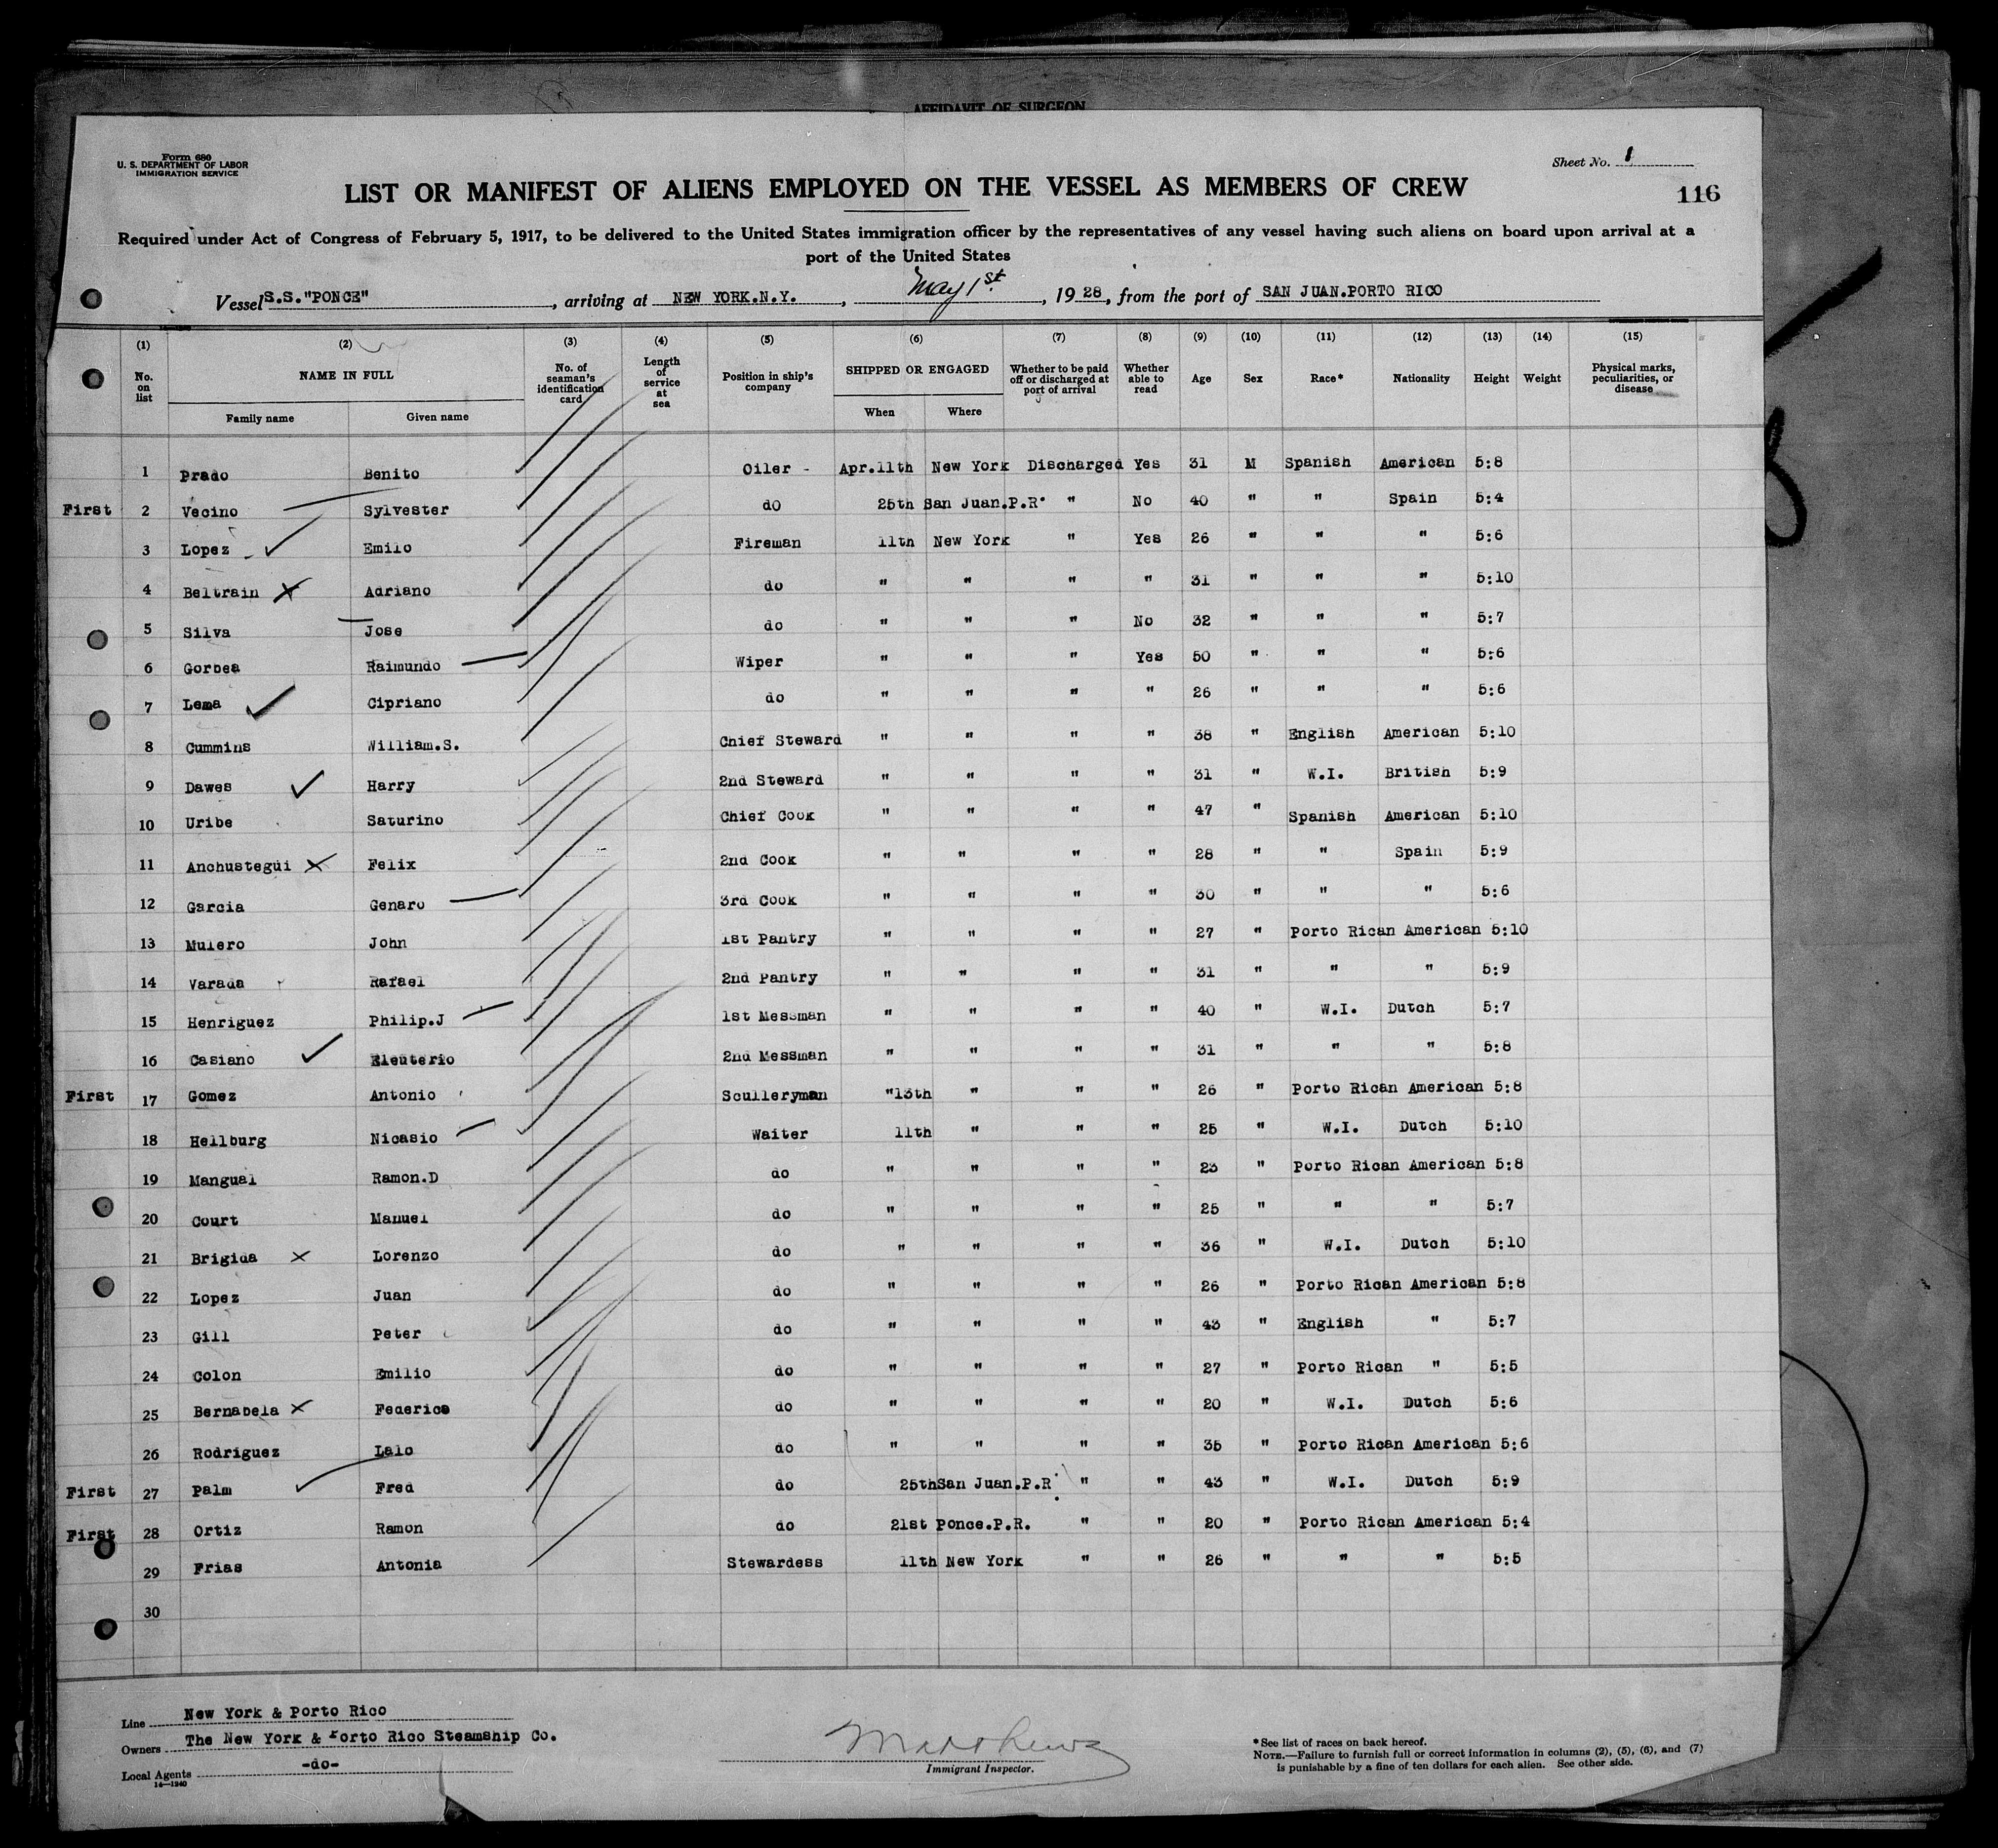 AFFIDAVIT OF SURGEON
Form 680
U. S. DEPARTMENT OF LABOR
IMMIGRATION SERVICE
Sheet No. 1
LIST OR MANIFEST OF ALIENS EMPLOYED ON THE VESSEL AS MEMBERS OF CREW
116
Required under Act of Congress of February 5, 1917, to be delivered to the United States immigration officer by the representatives of any vessel having such aliens on board upon arrival at a
port of the United States
Vessel S.S."PONCE", arriving at NEW YORK.N.Y., May 1st, 1928, from the port of SAN JUAN.PORTO RICO
(1) (2) (3) (4) (5) (6) (7) (8) (9) (10) (11) (12) (13) (14) (15)
No. on list NAME IN FULL Family name Given name No. of seaman's identification card Length of service at sea Position in ship's company SHIPPED OR ENGAGED When Where Whether to be paid off or discharged at port of arrival Whether able to read Age Sex Race* Nationality Height Weight Physical marks, peculiarities, or disease
1 Prado Benito Oiler - Apr.11th New York Discharged Yes 31 M Spanish American 5:8
First 2 Vecino Sylvester do 25th San Juan.P.R. " No 40 " " Spain 5:4
3 Lopez Emilo Fireman 11th New York " Yes 26 " " " 5:6
4 Beltrain Adriano do " " " " 31 " " " 5:10
5 Silva Jose do " " " No 32 " " " 5:7
6 Gorbea Raimundo Wiper " " " Yes 50 " " " 5:6
7 Lema Cipriano do " " " " 26 " " " 5:6
8 Cummins William.S. Chief Steward " " " " 38 " English American 5:10
9 Dawes Harry 2nd Steward " " " " 31 " W.I. British 5:9
10 Uribe Saturino Chief Cook " " " " 47 " Spanish American 5:10
11 Anchustegui Felix 2nd Cook " " " " 28 " " Spain 5:9
12 Garcia Genaro 3rd Cook " " " " 30 " " " 5:6
13 Mulero John 1st Pantry " " " " 27 " Porto Rican American 5:10
14 Varada Rafael 2nd Pantry " " " " 31 " " " 5:9
15 Henriguez Philip.J 1st Messman " " " " 40 " W.I. Dutch 5:7
16 Casiano Eleuterio 2nd Messman " " " " 31 " " " 5:8
First 17 Gomez Antonio Sculleryman "13th " " " 26 " Porto Rican American 5:8
18 Hellburg Nicasio Waiter 11th " " " 25 " W.I. Dutch 5:10
19 Mangual Ramon.D do " " " " 23 " Porto Rican American 5:8
20 Court Manuel do " " " " 25 " " " 5:7
21 Brigida Lorenzo do " " " " 36 " W.I. Dutch 5:10
22 Lopez Juan do " " " " 26 " Porto Rican American 5:8
23 Gill Peter do " " " " 43 " English " 5:7
24 Colon Emilio do " " " " 27 " Porto Rican " 5:5
25 Bernabela Federico do " " " " 20 " W.I. Dutch 5:6
26 Rodriguez Lalo do " " " " 35 " Porto Rican American 5:6
First 27 Palm Fred do 25th San Juan.P.R. " " 43 " W.I. Dutch 5:9
First 28 Ortiz Ramon do 21st Ponce.P.R. " " 20 " Porto Rican American 5:4
29 Frias Antonia Stewardess 11th New York " " 26 " " " 5:5
30
Line New York & Porto Rico
Owners The New York & Porto Rico Steamship Co.
Local Agents -do-
14—1240
Matthews
Immigrant Inspector.
*See list of races on back hereof.
NOTE.—Failure to furnish full or correct information in columns (2), (5), (6), and (7)
is punishable by a fine of ten dollars for each alien. See other side.